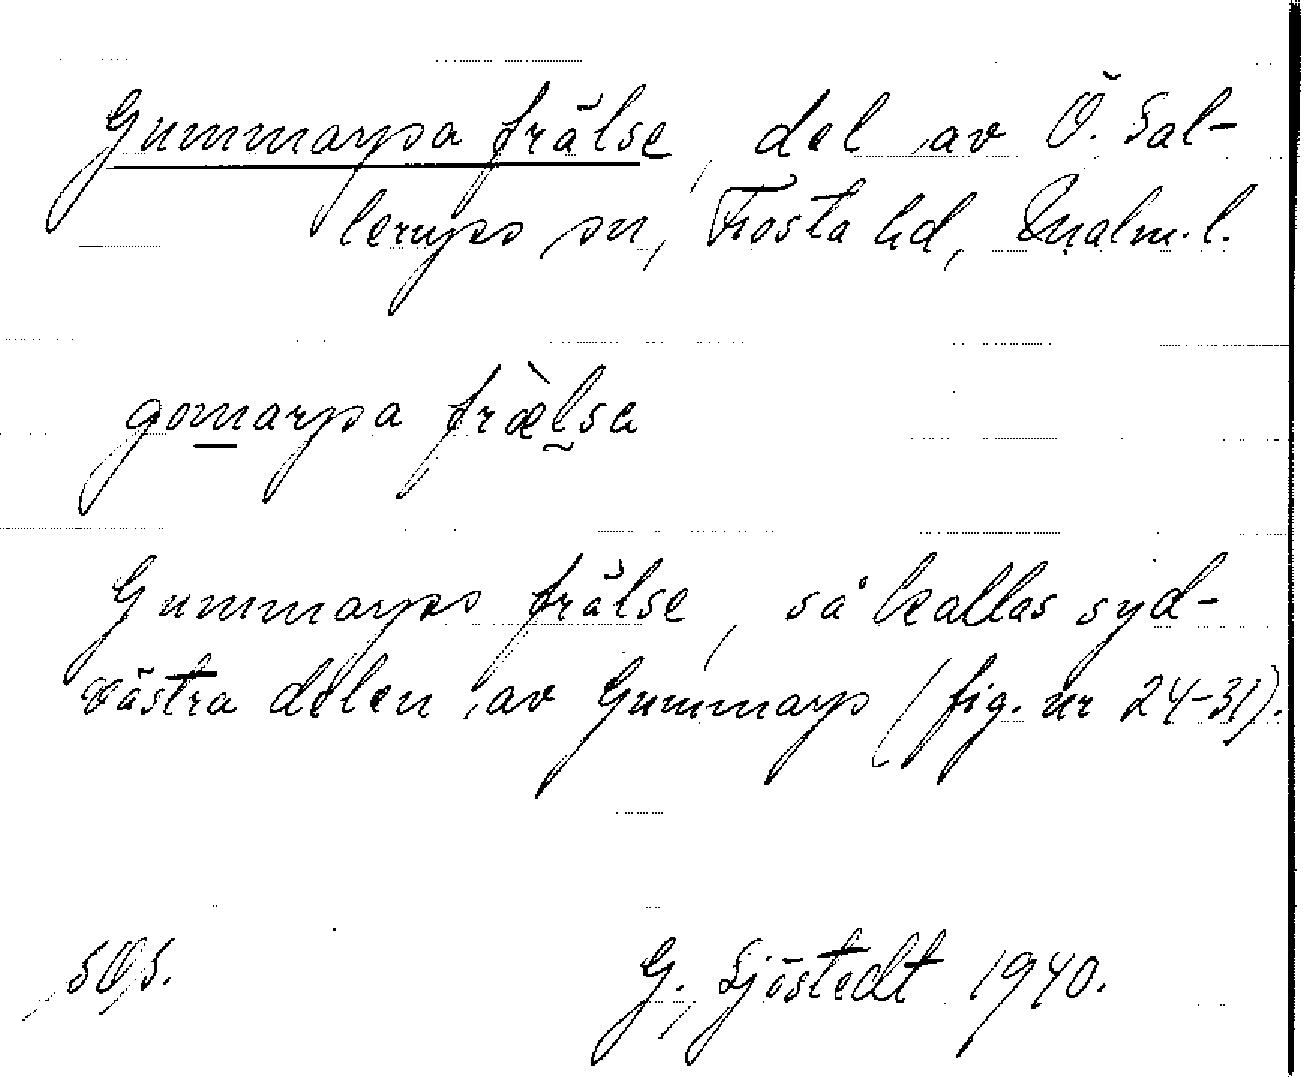 Gummarpsa frälse, del av Ö. Sal-
lerups sn, Frosta hd, Malm. l.
gomarpsa fræ̀lsa
Gummarps frälse, så kallas syd-
västra delen av Gummarp (fig. nr 24-31).
G. Sjöstedt 1940.